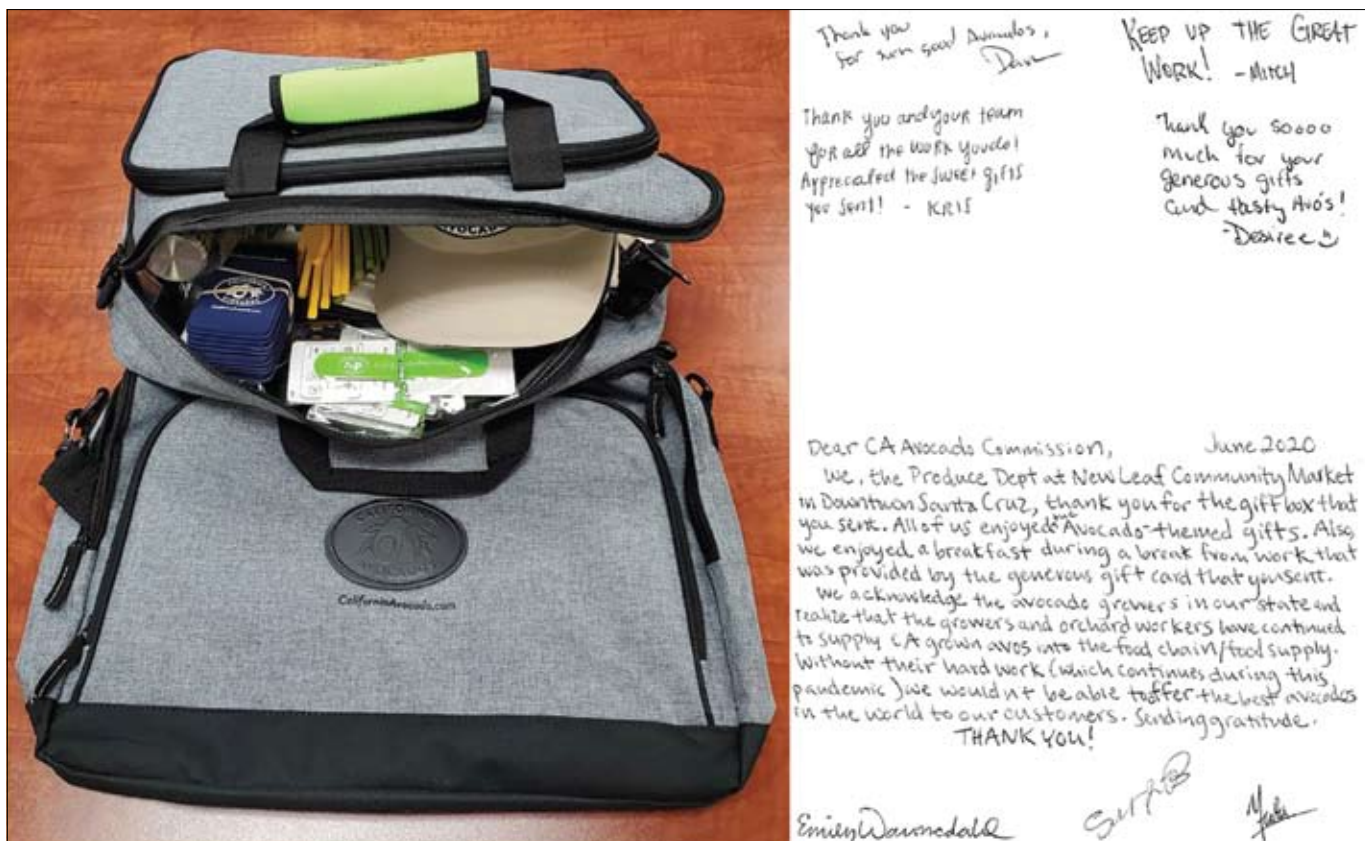 AVOCAD
CALIFORNIA
AVOCADOS
CALIFORNIA
CaliforniaAvocado.com
Thank you
for such good Avocados,
KEEP UP THE GREAT
WORK! -MITCH
Thank you and your team
for all the work you do!
Apprecated the sweet gifts
you sent! - KRIS
Thank you soooo
much for your
generous gifts
and tasty Avo's!
-Desiree
Dear CA Avocado Commission, June 2020
We, the Produce Dept at New Leaf Community Market
in Downtown Santa Cruz, thank you for the gift box that
you sent. All of us enjoyed the Avocado-themed gifts. Also,
we enjoyed a breakfast during a break from work that
was provided by the generous gift card that you sent.
We acknowledge the avocado growers in our state and
realize that the growers and orchard workers have continued
to supply CA grown avos into the food chain/food supply.
Without their hard work (which continues during this
pandemic) we wouldn't be able to offer the best avocados
in the world to our customers. Sending gratitude.
THANK YOU!
Emily